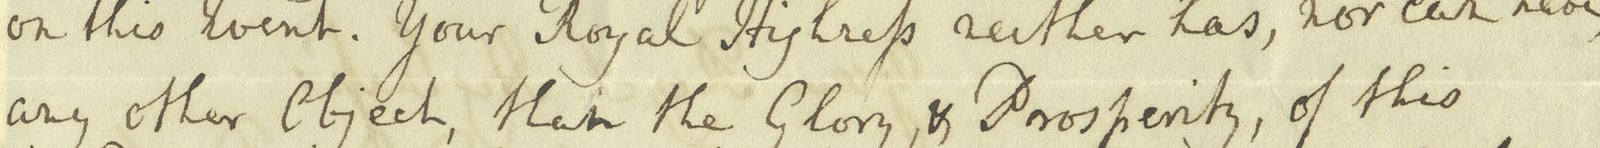 on this Event. Your Royal Highness neither has, nor can have,
any other Object, than the Glory, & Prosperity, of this